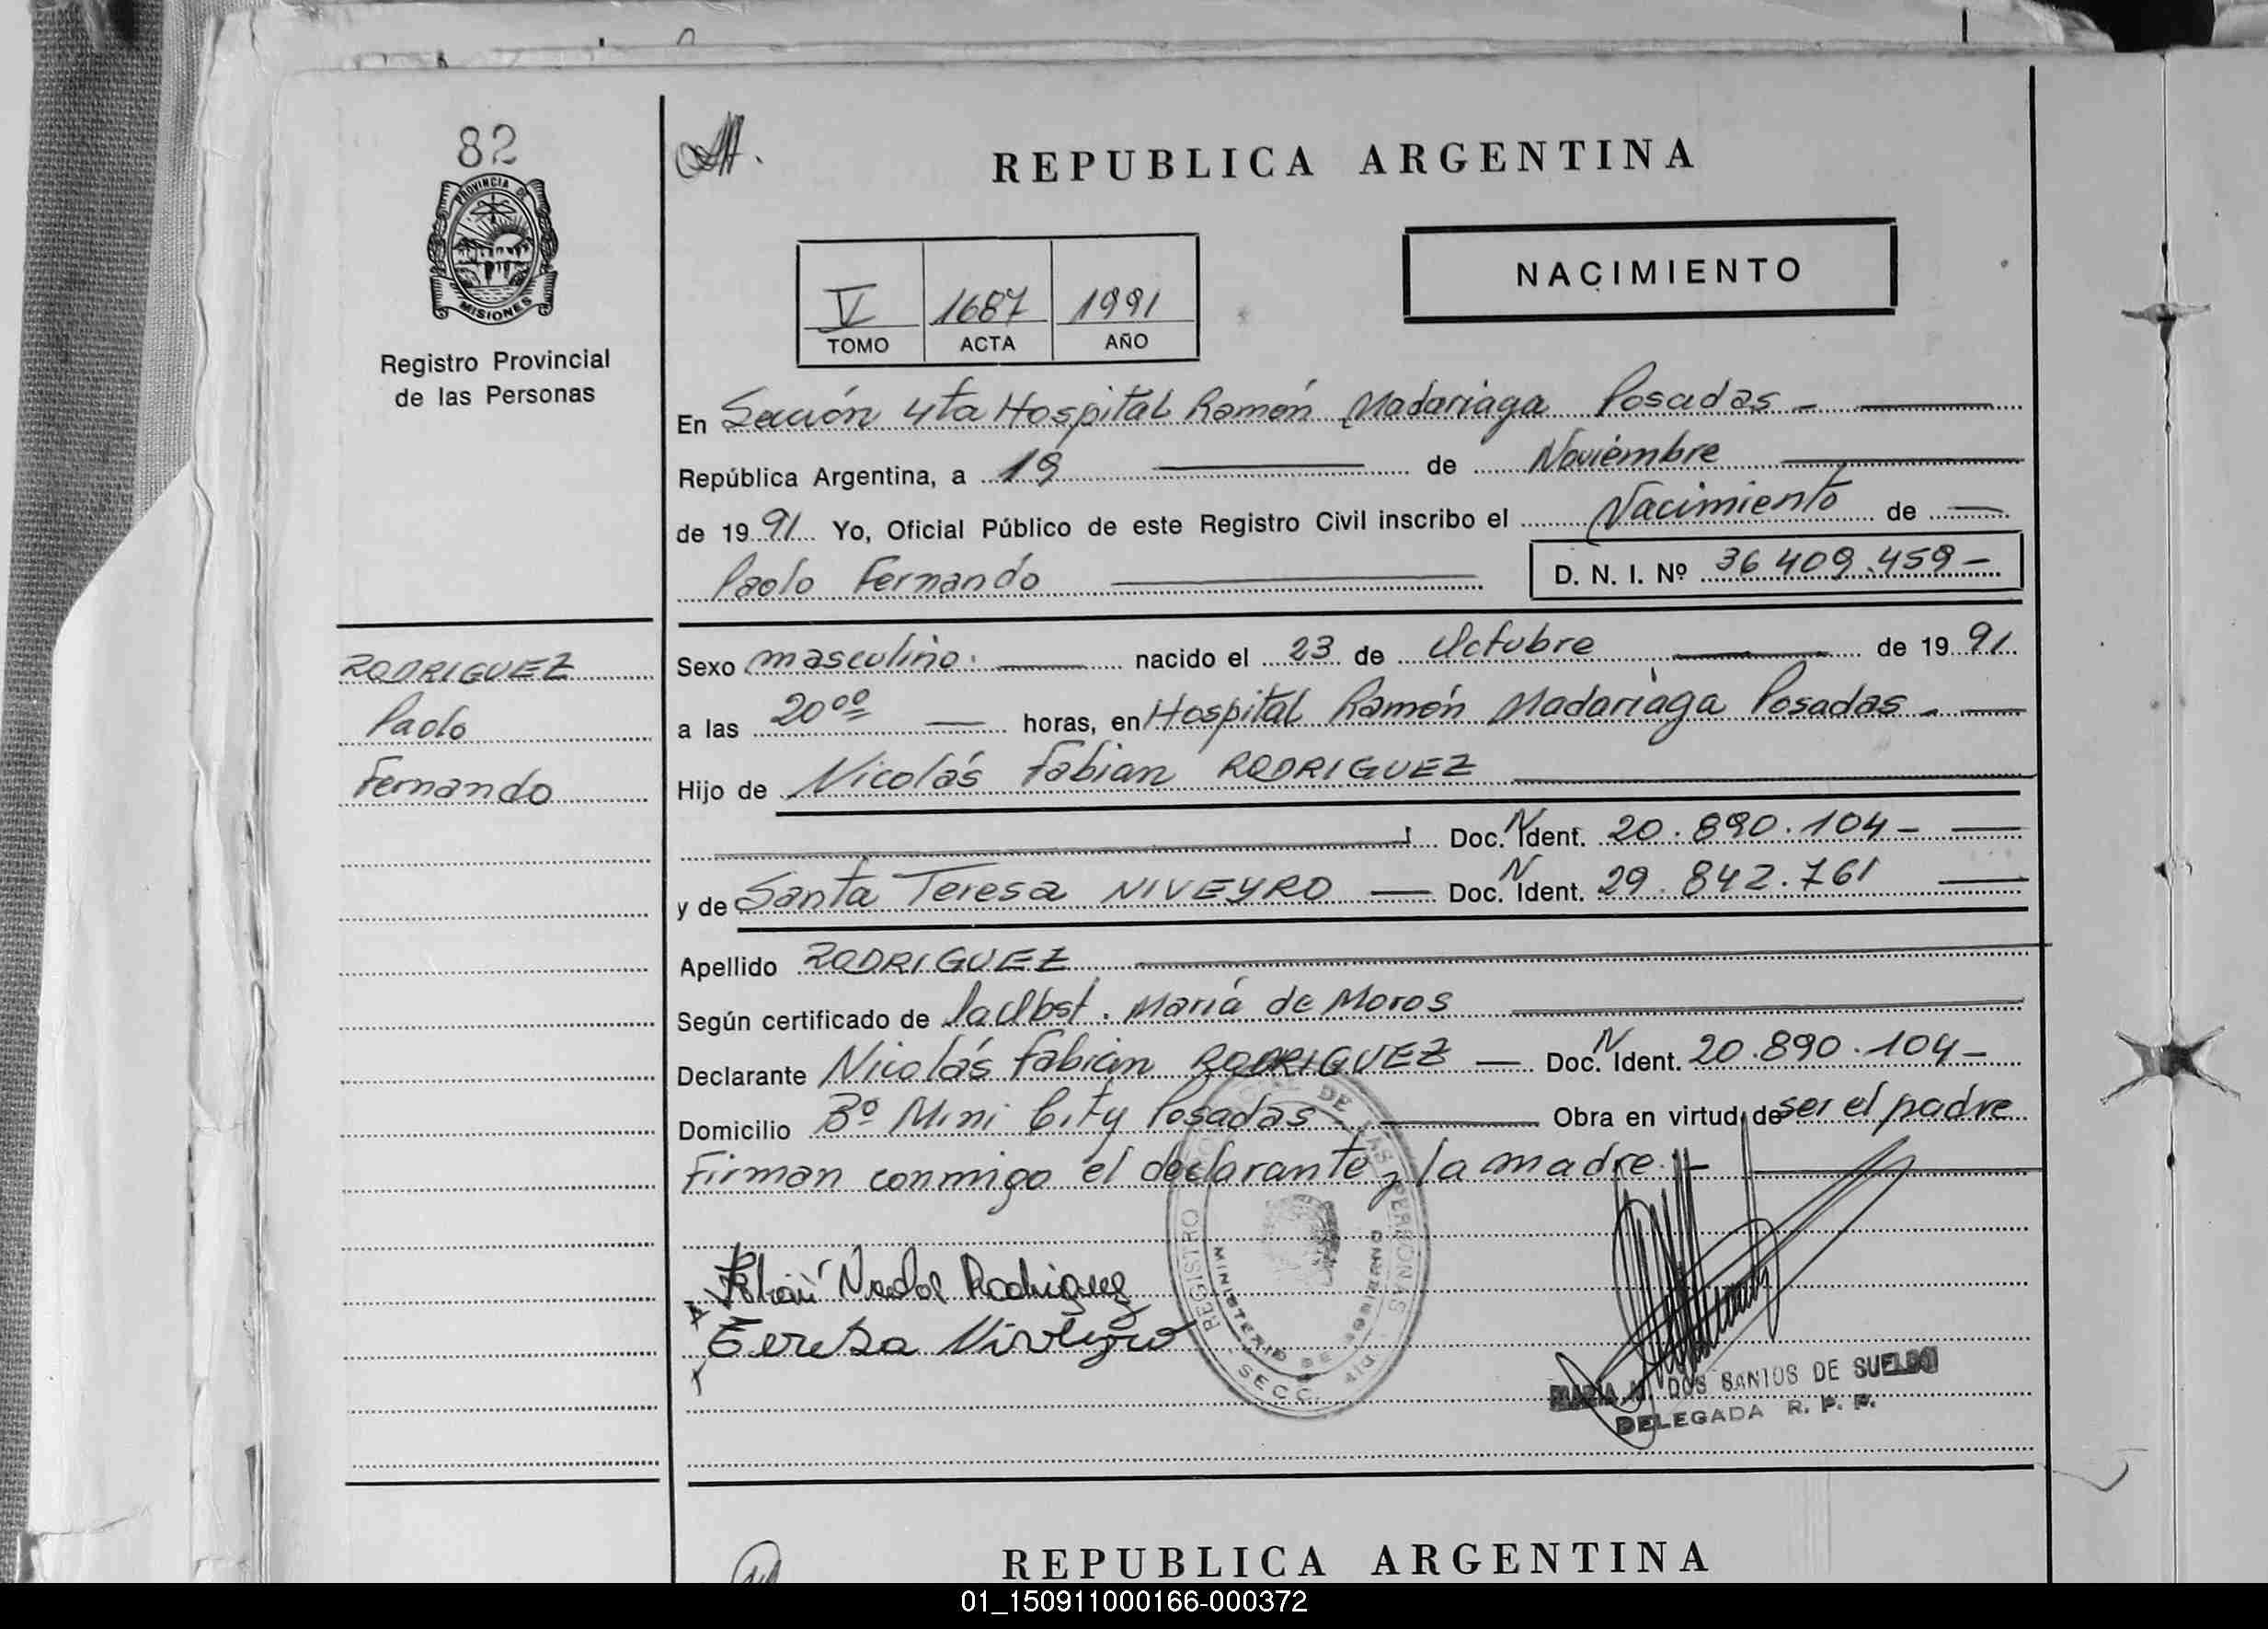 82
PROVINCIA DE
MISIONES
Registro Provincial
de las Personas
REPUBLICA ARGENTINA
NACIMIENTO
V 1687 1991
TOMO ACTA AÑO
En Sección 4ta Hospital Ramón Madariaga Posadas -
República Argentina, a 19 de Noviembre
de 19 91 Yo, Oficial Público de este Registro Civil inscribo el Nacimiento de
Paolo Fernando D. N. I. Nº 36 409.459-
RODRIGUEZ
Paolo
Fernando
Sexo masculino. nacido el 23 de Octubre de 19 91.
a las 20 00 horas, en Hospital Ramón Madariaga Posadas -
Hijo de Nicolás Fabian RODRIGUEZ
Doc. N Ident. 20.890.104-
y de Santa Teresa NIVEYRO Doc. N Ident. 29.842.761
Apellido RODRIGUEZ
Según certificado de la Obst. María de Moros
Declarante Nicolás Fabián RODRIGUEZ Doc. N Ident. 20.890.104-
Domicilio Bº Mini City Posadas Obra en virtud de ser el padre
Firman conmigo el declarante y la madre.-
Rodriguez
Teresa Niveyro
REGISTRO DE LAS PERSONAS
MINISTERIO DE GOBIERNO
SECC.
MARIA DOS SANTOS DE SUELDO
DELEGADA R. P. P.
REPUBLICA ARGENTINA
01_150911000166-000372